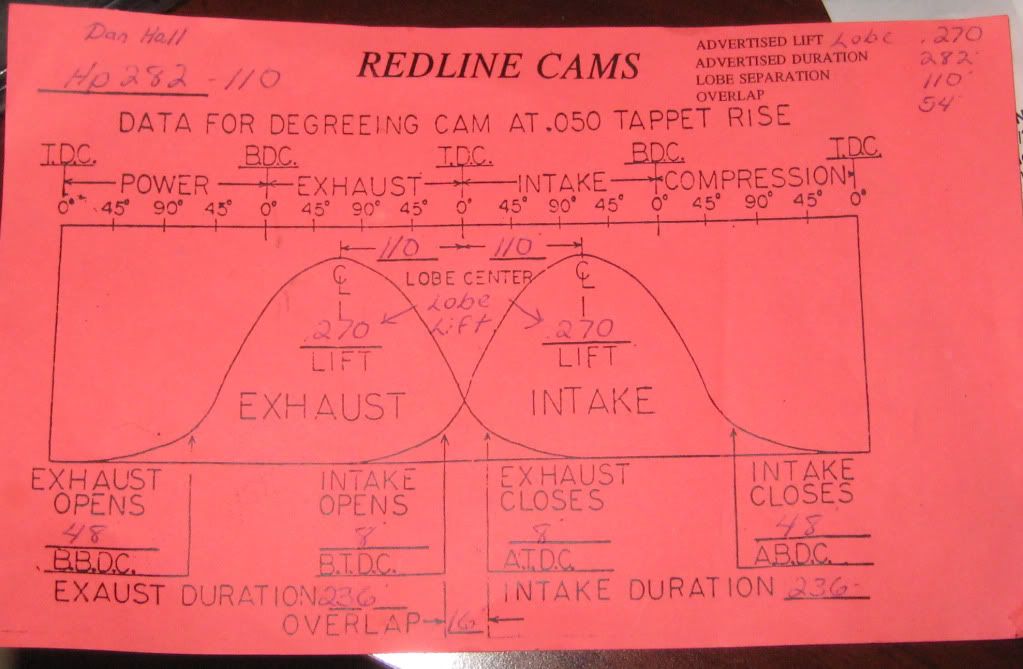 Dan Hall
Hp 282 - 110
REDLINE CAMS
ADVERTISED LIFT Lobe .270
ADVERTISED DURATION 282
LOBE SEPARATION 110
OVERLAP 54
DATA FOR DEGREEING CAM AT .050 TAPPET RISE
T.D.C. B.D.C. T.D.C. B.D.C. T.D.C.
POWER EXHAUST INTAKE COMPRESSION
0° 45° 90° 45° 0° 45° 90° 45° 0° 45° 90° 45° 0° 45° 90° 45° 0°
110 110
CL LOBE CENTER CL
Lobe Lift
.270 .270
LIFT LIFT
EXHAUST INTAKE
EXHAUST OPENS
48
B.B.D.C.
INTAKE OPENS
8
B.T.D.C.
EXHAUST CLOSES
8
A.T.D.C.
INTAKE CLOSES
48
A.B.D.C.
EXAUST DURATION 236
INTAKE DURATION 236
OVERLAP 16